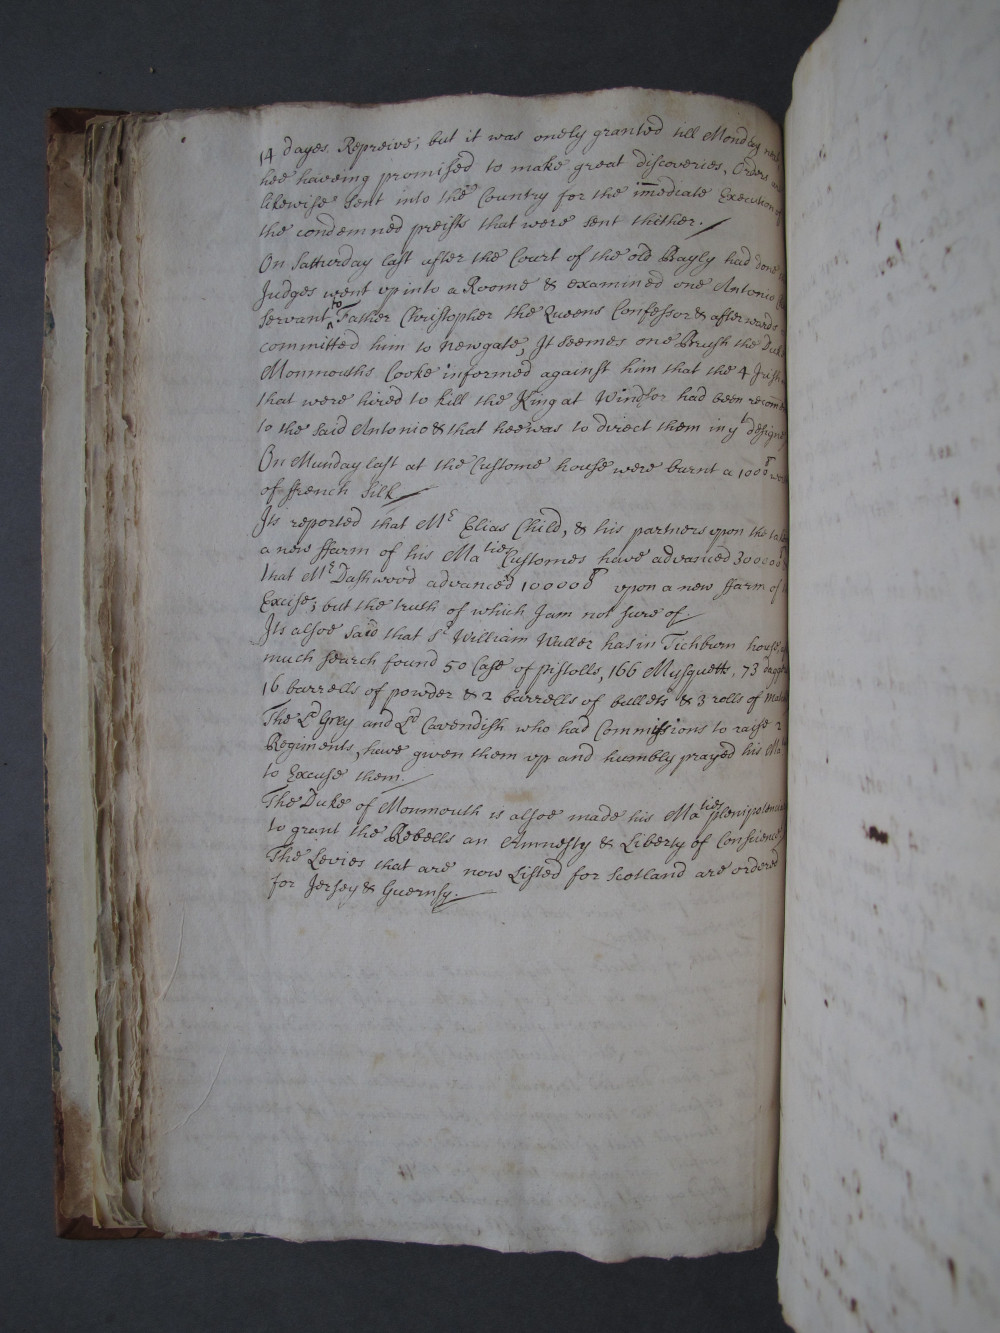 14 dayes Repreive; but it was onely granted till Monday next
hee haveing promised to make great discoveries, Orders
likewise sent into the Country for the imediate Execution of
the condemned preists that were sent thither.
On Satturday last after the Court of the old Bayly had done
Judges went vp into a Roome & examined one Antonio
servant to Father Christopher the Queens Confessor & afterwards
committed him to newgate, It seemes one Brush the Duke
Monmouths Cooke informed against him that the 4 Irish
that were hired to kill the King at Windsor had been
to the said Antonio & that hee was to direct them in yt designe
On Munday last at the Custome house were burnt a 1000 l
of ffrench Silk
Its reported that Mr Elias Child, & his partners vpon the
a new ffarm of his Maties Customes have advanced 300000 l
that Mr Dashwood advanced 100000 l vpon a new ffarm of
Excise; but the truth of which I am not sure of.
Its alsoe said that Sr William Waller has in Tichburn house
much search found 50 Case of pistolls, 166 Musquetts, 73
16 barrells of powder & 2 barrells of bullets & 3 rolls of
The Ld Grey and Ld Cavendish who had Commissions to raise 2
Regiments, have given them vp and humbly prayed his Ma
to Excuse them.
The Duke of Monmouth is alsoe made his Maties
to grant the Rebells an Amnesty & Liberty of Conscience
The Levies that are now Listed for Scotland are ordered
for Jersey & Guernsy.